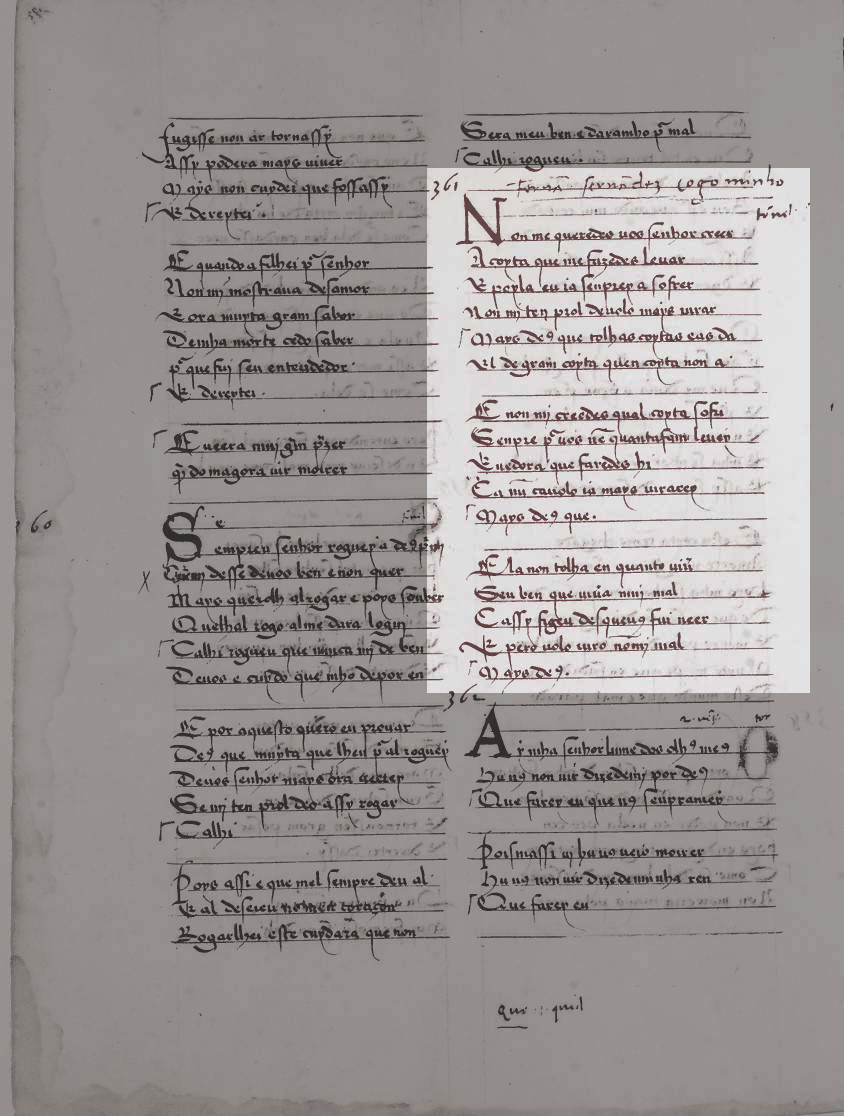 fugisse non ar tornassy
Assy podera mays viver
Mays non cuydei que fossassy
E dereytei.
E quando a filhei pʳ senhor
Non mi mostraua desamor
E ora muyta gram sabor
Demha morte cedo saber
pʳ que fui seu entendedor
E dereytei.
E ueera mui gm̃ pʳzer
qñdo magora uir morrer
360
S e
empreu senhor roguey a de9 pʳ mi
desse deuos ben e non quer
Mays querolh al rogar e poys souber
Quelhal rogo al me dara logui
Calhi rogueu que nunca mi de ben
Deuos e cuydo que mho depor en
E por aquesto quero eu prouar
De9 que muyta que lheu pʳ al roguey
Deuos senhor mays ora
Se mi ten prol deo assy rogar
Calhi
Poys assi e que mel sempre deu al
E al deseieu
Rogarlhei este cuydara que non
Sera meu ben e darambo pʳ mal
Calhi rogueu.
361 fernã fernãdez cogominho
tornel
N on me queredes uos senhor creer
A coyta que me fazedes leuar
E poyla eu ia senprey a sofrer
Non mi ten prol deuolo mays iurar
Mays de9 que tolhas coytas eas da
Vl de gram coyta quen coyta non a
E non mi creedes qual coyta sofri
Senpre pʳ uos nẽ quantafam leuey
E uedora que faredes hi
Ca nũ cauolo ia mays iurarey
Mays de9 que.
Ela non tolha en quanto uiũ
Seu ben que uiũa mui mal
Cassy figeu desqueu9 fui ueer
E pero uolo iuro nõmi ual
Mays de9.
362
A r mha senhor lume dos olh9 me9
hu u9 non uir dizedemj por de9
Que farey eu que u9 senpramey
Poismassi uj hu uo ueio morrer
hu u9 non uir dizedeminha ren
Que farey eu